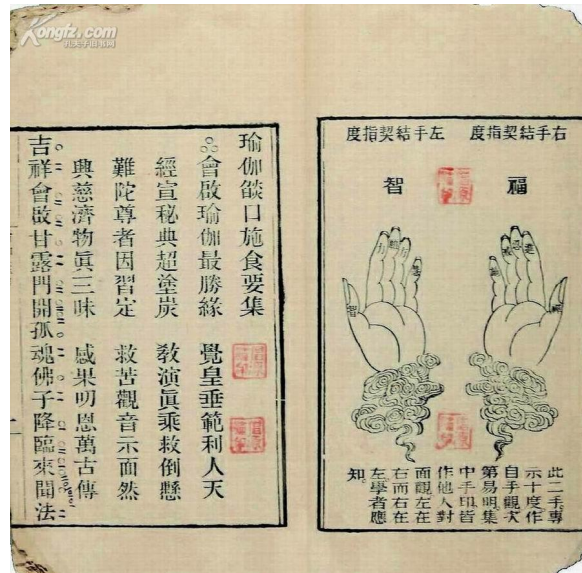 Kongfz.com
孔夫子旧书网
右手結契指度
左手結契指度
福
智
此二手專
示十度作
自手觀次
第易明集
中手印皆
作他人對
面觀左在
右而右在
左學者應
知
瑜伽燄口施食要集
會啟瑜伽最勝緣 覺皇垂範利人天
經宣秘典超塗炭 教演眞乘救倒懸
難陀尊者因習定 救苦觀音示面然
興慈濟物眞三昧 感果明恩萬古傳
吉祥會啟甘露門開孤魂佛子降臨來聞法